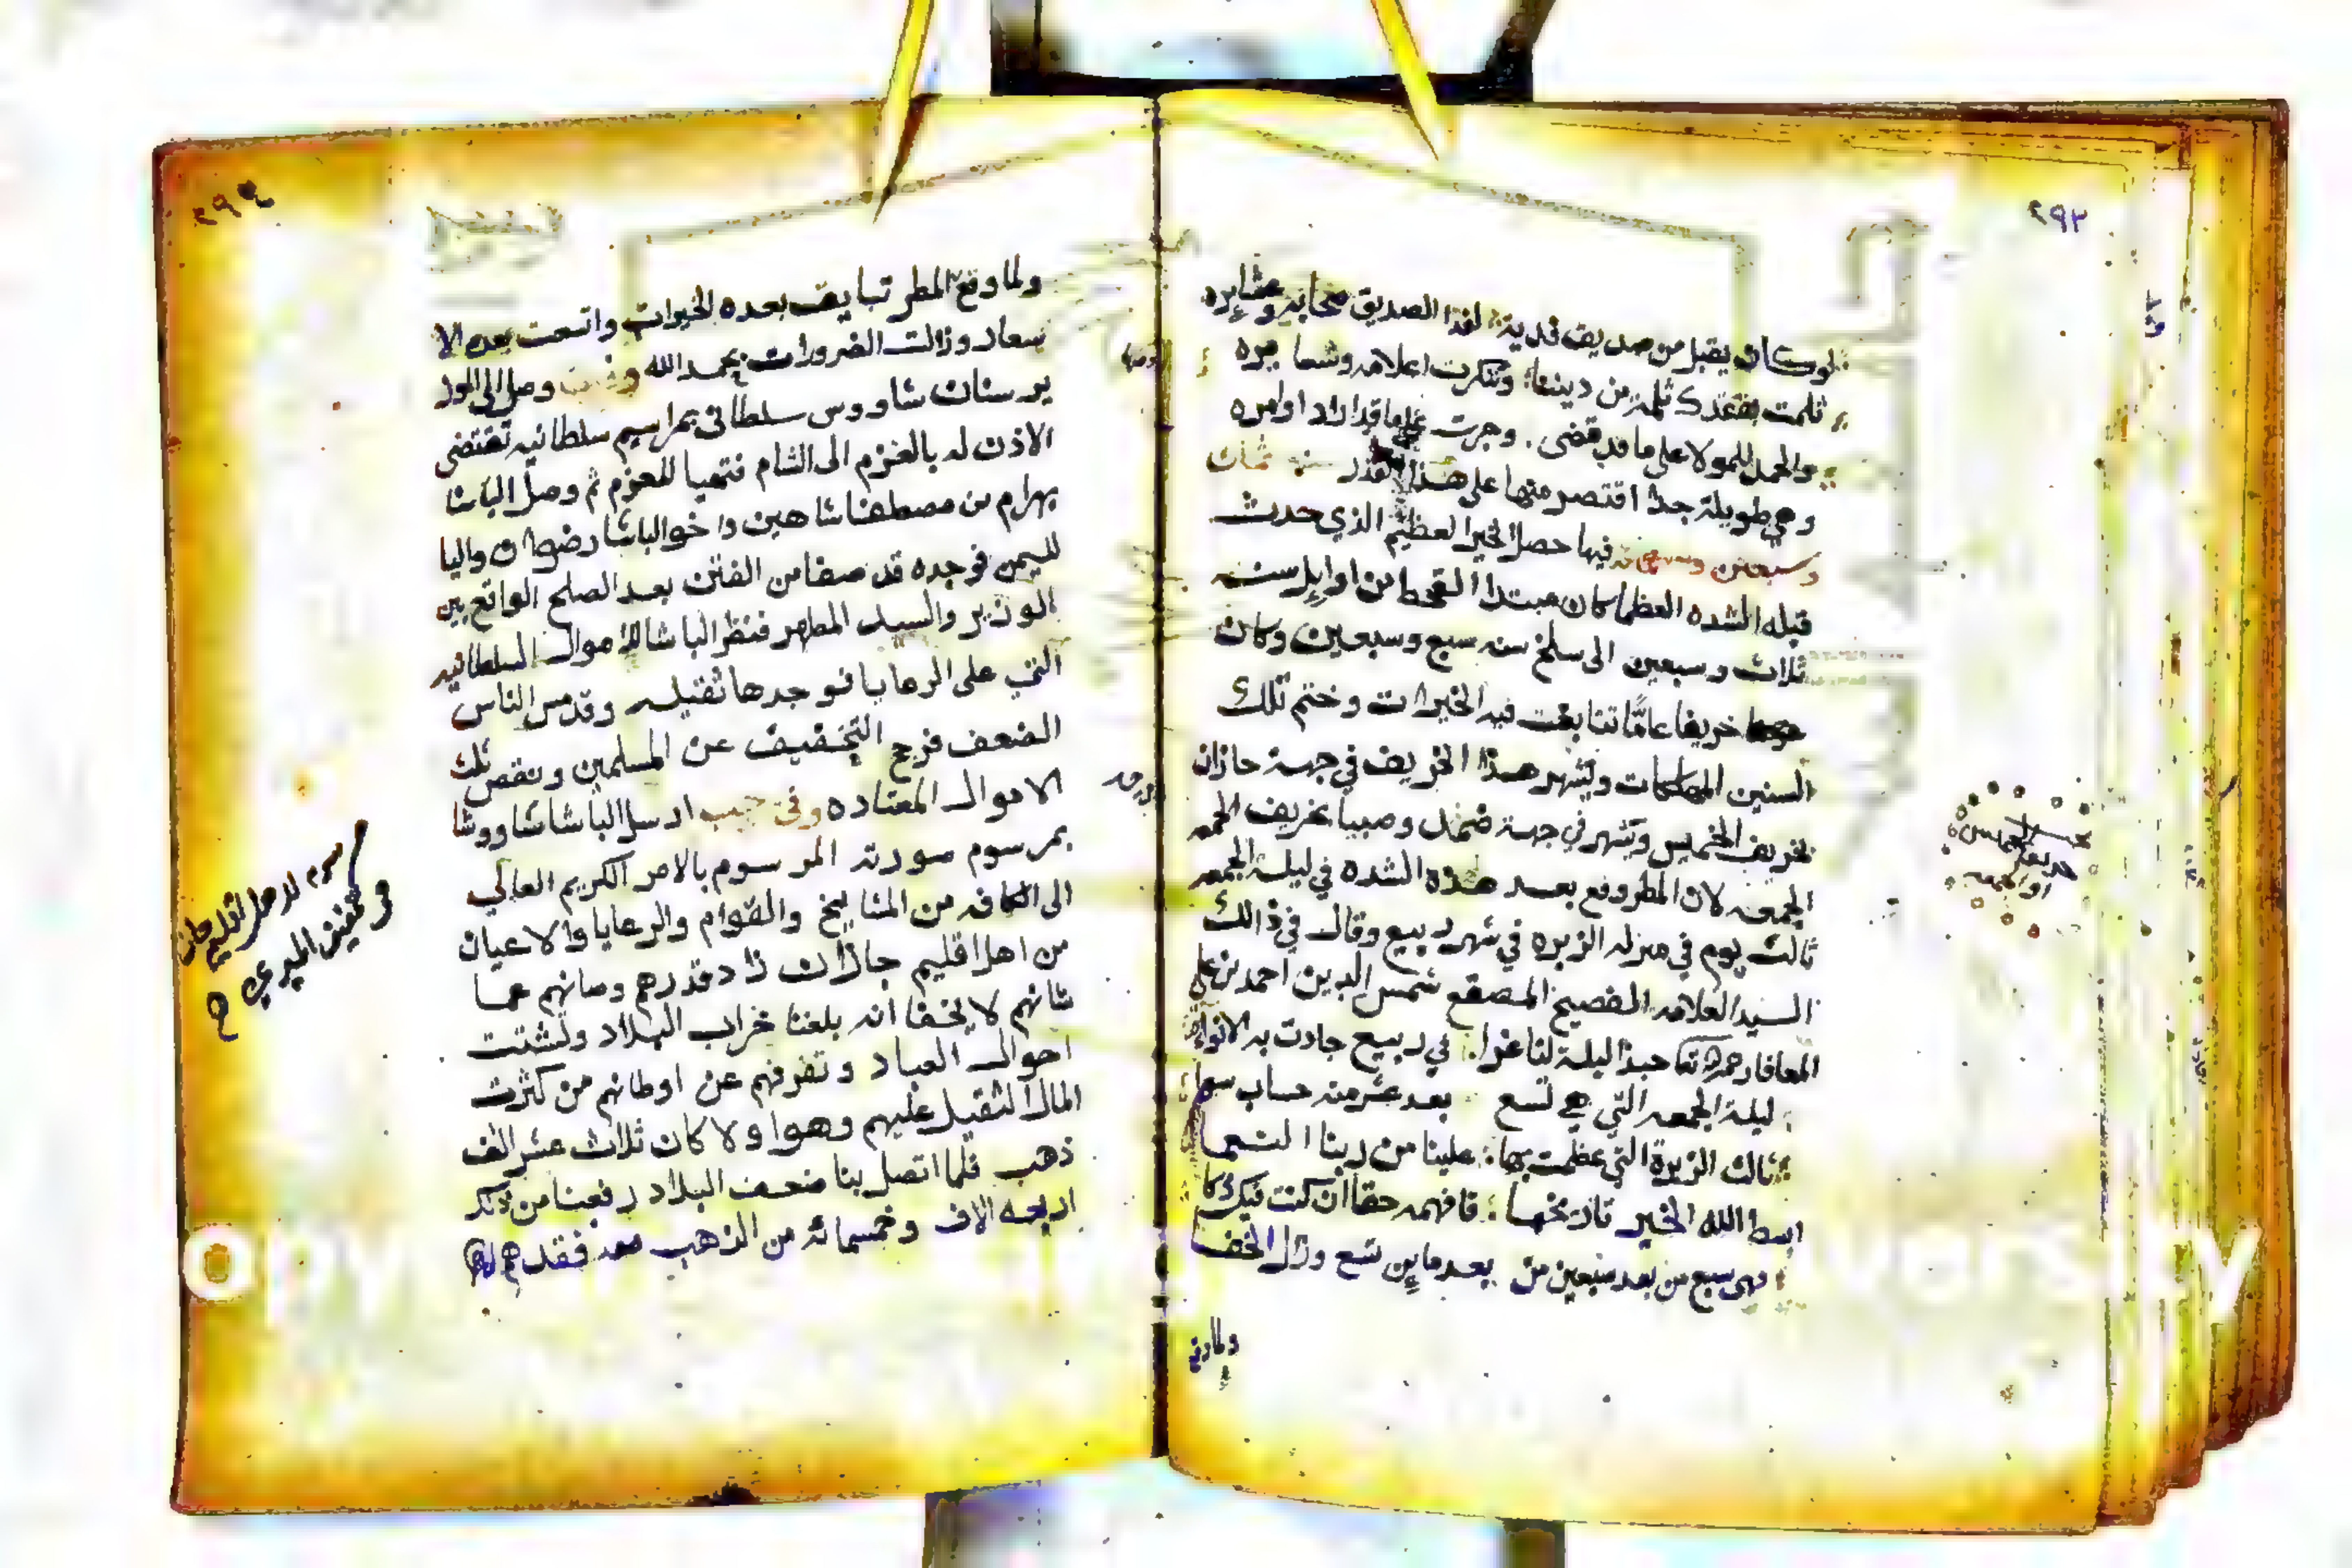 ٢٩٣
لوكان يقبل من صديق فدية لفدا الصديق صحابه وعشايره
ثلمت بفقدك ثلمة من ديننا وتنكرت اعلامه وشعايره
والحمد للمولا على ما قد قضى وجرت علىما قد اراد اوامره
وهي طويلة جدا اقتصر منها على هذا القدر سنه ثمان
وسبعين فيها حصل الخير العظيم الذي حدث
قبله الشده العظما كان مبتدا القحط من اوايل سنه
ثلاث وسبعين الى سلخ سنه سبع وسبعين وكان
خريفا عامًّا تتابعت فيه الخيرات وختم تلك
السنين المهلكات ويشهر هذا الخريف في جهة جازان
بخريف الخميس ويشهر في جهة ضمد وصبيا بخريف الجمعه
الجمعه لان المطر وقع بعد هذه الشده في ليلة الجمعه
ثالث يوم في منزله الزبره في شهر ربيع وقال في ذالك
السيد العلامه الفصيح المصقع شمس الدين احمد بن علي
المعافا رحمه الله تعا حبذا ليلة لنا غرا في ربيع جادت به الانواء
ليلة الجمعه التي هي تسع بعد عشر منه حساب سوا
ثالث الزبرة التي عظمت بها علينا من ربنا النعما
ابسط الله الخير تاريخها فافهمه حقا ان كنت فيك ذكا
فهي سبع من بعد سبعين من بعد ماين تسع وزال الخفا
ولما وقع
خريف الخميس
او الجمعه
٢٩٤
ولما وقع المطر تتابعت بعده الخيرات واتسعت بعده الا
سعار وزالت الضرورات بحمد الله وصل الى الوز
ير سنان شاووس سلطانى بمراسيم سلطانيه تقتضى
الاذن له بالعزم الى الشام فتهيا للعزم ثم وصل الباشا
بهرام بن مصطفا شاهين واخو الباشا رضوان واليا
لليمن فوجده قد صفا من الفتن بعد الصلح الواقع بين
الوزير والسيد المطهر فنظر الباشا للاموال السلطانيه
التي على الرعايا فوجدها ثقيله وقد مس الناس
الضعف فرجح التخفيف عن المسلمين ونقص تلك
الاموال المعتاده وفى رجب ارسل الباشا شاووشا
بمرسوم صورته المرسوم بالامر الكريم العالي
الى الكافه من المشايخ والقوام والرعايا والاعيان
من اهل اقليم جازان زاد قدرهم وصانهم عما
شانهم لا يخفا انه بلغنا خراب البلاد وتشتت
احوال العباد وتفرقهم عن اوطانهم من كثرت
المال الثقيل عليهم وهو اولا كان ثلاث عشر الف
ذهب فلما اتصل بنا ضعف البلاد رفعنا من ذلك
اربعه الاف وخمسمائه من الذهب فقد
مرسوم لاهل اقليم جازان